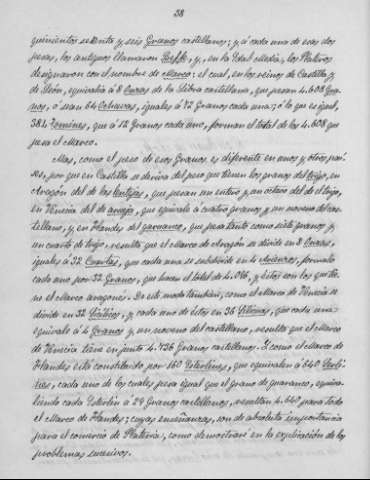 38
quinientos setenta y seis Granos castellanos; y á cada una de esas dos
pesas, los antiguos llamaron y, en la Edad Media, los Plateros
designaron con el nombre de Marco: el cual, en los reinos de Castilla y
de León, equivalía á 8 Onzas de la Libra castellana, que pesan 4.608 Gra-
nos, ó sean 64 Ochavas, iguales á 72 Granos cada una; ó lo que es igual,
384 Tomines, que á 12 Granos cada uno, forman el total de los 4.608 que
pesa el Marco.
Mas, como el peso de esos Granos es diferente en unos y otros paí-
ses, por que en Castilla se deriva del peso que tienen los granos del trigo, en
Aragón del de las Lentejas, que pesan un entero y un octavo del de trigo,
en Venecia del de que equivale á cuatro granos y un noveno del cas-
tellano, y en Flandes del garvanzo, que pesa tanto como siete granos y
un cuarto de trigo, resulta que el Marco de Aragón se divide en 8 Onzas,
iguales á 32 Cuartas, que cada una se subdivide en 4 Arienzos, formado
cada uno por 32 Granos, que hacen el total de 4.096, y éstos son los que tie-
ne el Marco aragonés. De este modo también, como el Marco de Venecia se
divide en 32 y cada uno de éstos en 36 que cada una
equivale á 4 Granos y un noveno del castellano, resulta que el Marco
de Venecia tiene en junto 4.736 Granos castellanos. Y como el Marco de
Flandes está constituido por 160 Esterlines, que equivalen á 640
cada uno de los cuales pesa igual que el grano de Guarvanzo, equiva-
liendo cada Esterlin á 29 Granos castellanos, resultan 4.640 para todo
el Marco de Flandes; cuyas enseñanzas, son de absoluta importancia
para el comercio de Platería, como demostraré en la explicación de los
problemas sucesivos.